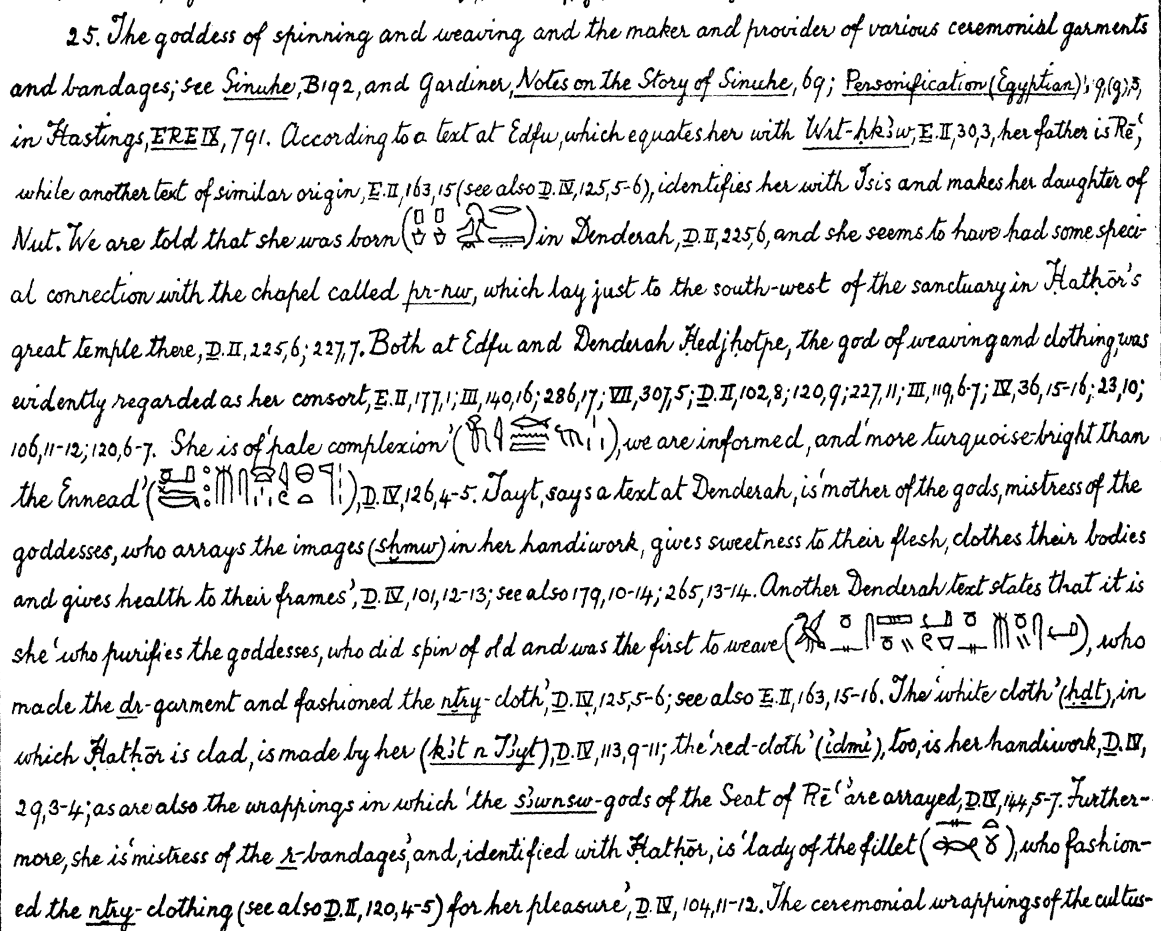 25. The goddess of spinning and weaving and the maker and provider of various ceremonial garments
and bandages; see Sinuhe, B192, and Gardiner, Notes on the Story of Sinuhe, 69; 'Personification (Egyptian)', 9, (g), 3,
in Hastings, ERE IX, 791. According to a text at Edfu, which equates her with Wrt-ḥkꜣw, E. II, 30, 3, her father is Rēʿ,
while another text of similar origin, E. II, 163, 15 (see also D. IV, 125, 5-6), identifies her with Isis and makes her daughter of
Nut. We are told that she was born ( ) in Denderah, D. II, 225, 6, and she seems to have had some speci-
al connection with the chapel called pr-nw, which lay just to the south-west of the sanctuary in Ḥatḥōr's
great temple there, D. II, 225, 6; 227, 7. Both at Edfu and Denderah Ḥedjḥotpe, the god of weaving and clothing, was
evidently regarded as her consort, E. II, 177, 1; III, 140, 16; 286, 17; VII, 307, 5; D. II, 102, 8; 120, 9; 227, 11; III, 119, 6-7; IV, 36, 15-16; 23, 10;
106, 11-12; 120, 6-7. She is of 'pale complexion' ( ), we are informed, and 'more turquoise-bright than
the Ennead' ( ), D. IV, 126, 4-5. Tayt, says a text at Denderah, is 'mother of the gods, mistress of the
goddesses, who arrays the images (sḫmw) in her handiwork, gives sweetness to their flesh, clothes their bodies
and gives health to their frames', D. IV, 101, 12-13; see also 179, 10-14; 265, 13-14. Another Denderah text states that it is
she 'who purifies the goddesses, who did spin of old and was the first to weave ( ), who
made the dr-garment and fashioned the nṯry-cloth', D. IV, 125, 5-6; see also E. II, 163, 15-16. The 'white cloth' (ḥḏt), in
which Ḥatḥōr is clad, is made by her (kꜣt n Tꜣyt), D. IV, 113, 9-11; the 'red-cloth' (idmi), too, is her handiwork, D. IV,
29, 3-4; as are also the wrappings in which 'the sꜣwnsw-gods of the Seat of Rēʿ' are arrayed, D. IV, 144, 5-7. Further-
more, she is 'mistress of the r-bandages', and, identified with Ḥatḥōr, is 'lady of the fillet ( ), who fashion-
ed the nṯry-clothing (see also D. II, 120, 4-5) for her pleasure', D. IV, 104, 11-12. The ceremonial wrappings of the cultus-